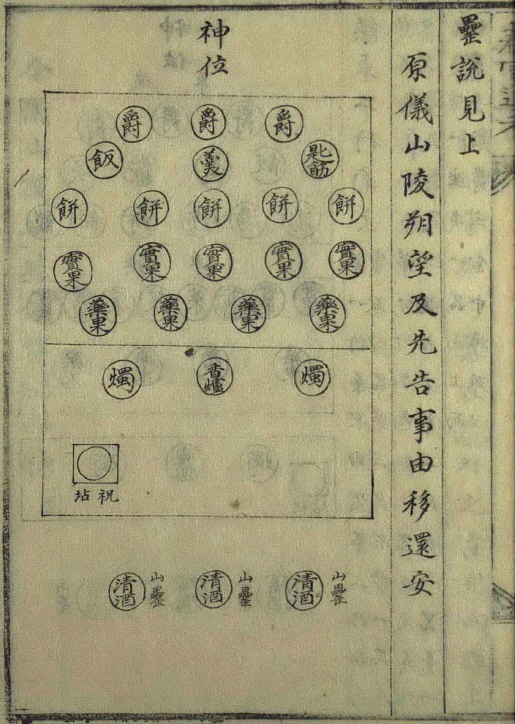 罍說見上
原儀山陵朔望及先告事由移還安
神位
爵 爵 爵
飯 羹 匙筯
餠 餠 餠 餠 餠
實果 實果 實果 實果 實果
藥果 藥果 藥果 藥果
燭 香爐 燭
祝坫
淸酒 山罍 淸酒 山罍 淸酒 山罍